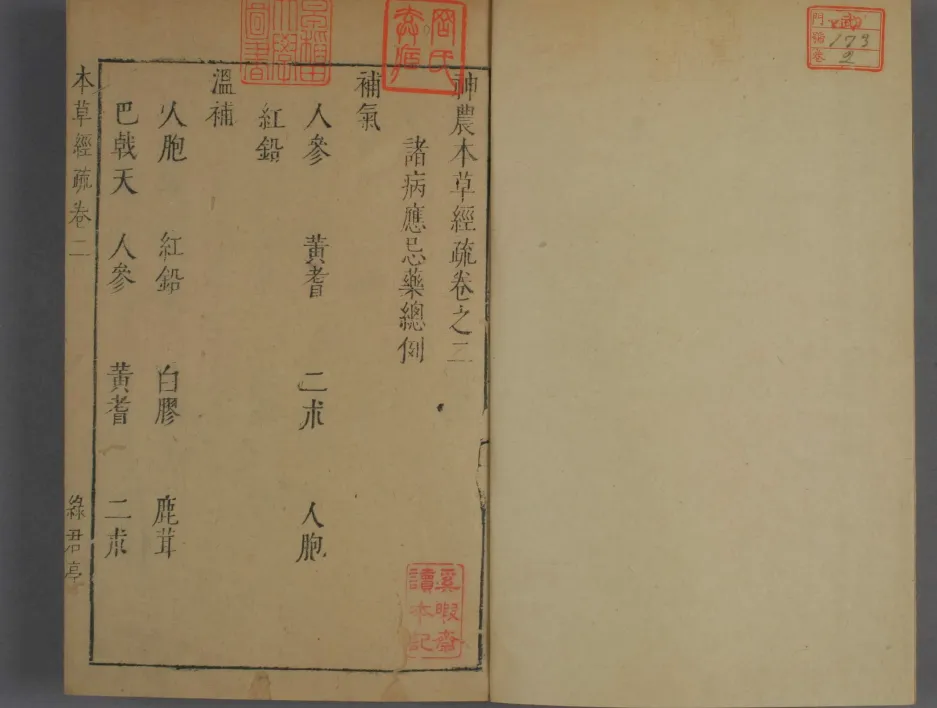 神農本草經疏卷之二
諸病應忌藥總例
補氣
人參 黃耆 二朮 人胞
紅鉛
溫補
人胞 紅鉛 白膠 鹿茸
巴戟天 人參 黃耆 二朮
本草經疏卷二 綠君亭
早稻田大學圖書
奚暇齋讀本記
門 号 卷
173
2